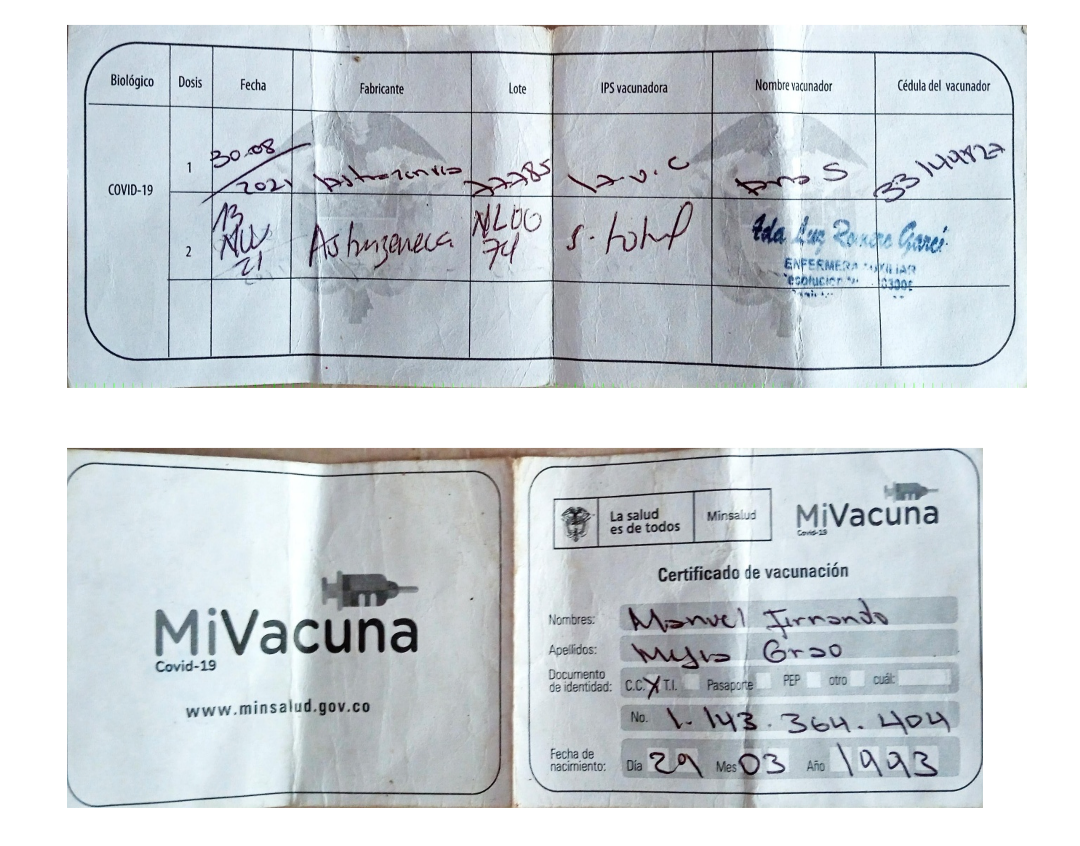 Biológico Dosis Fecha Fabricante Lote IPS vacunadora Nombre vacunador Cédula del vacunador
COVID-19
1 30.08 2021 77785 S
2 13 21 Astrazeneca NL00 74 S. total Ida Luz Romero Garcí
ENFERMERA
MiVacuna
Covid-19
www.minsalud.gov.co
La salud
es de todos
Minsalud
MiVacuna
Covid-19
Certificado de vacunación
Nombres: Manuel Fernando
Apellidos: Grao
Documento
de identidad: C.C. X T.I. Pasaporte PEP otro cuál:
No. 1.143.364.404
Fecha de
nacimiento: Día 29 Mes 03 Año 1993